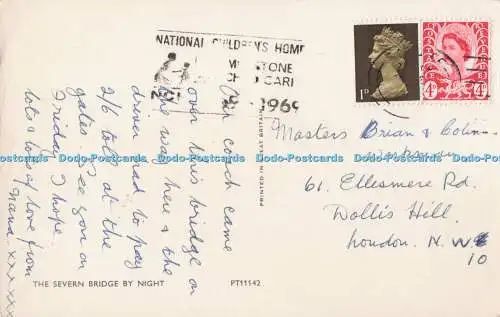 NATIONAL CHILDREN'S HOME
1969
1D
4D
Our coach came
over this bridge on
the way here & the
driver had to pay
2/6 toll at the
gates. See you on
Friday I hope.
lots & lots of love from
Nana. xxxxxx
PRINTED IN GREAT BRITAIN
Masters Brian & Colin
61. Ellesmere Rd.
Dollis Hill.
London. N.W.
10
Dodo-Postcards Dodo-Postcards Dodo-Postcards Dodo-Postcards Dodo-Postcards
THE SEVERN BRIDGE BY NIGHT
PT11142